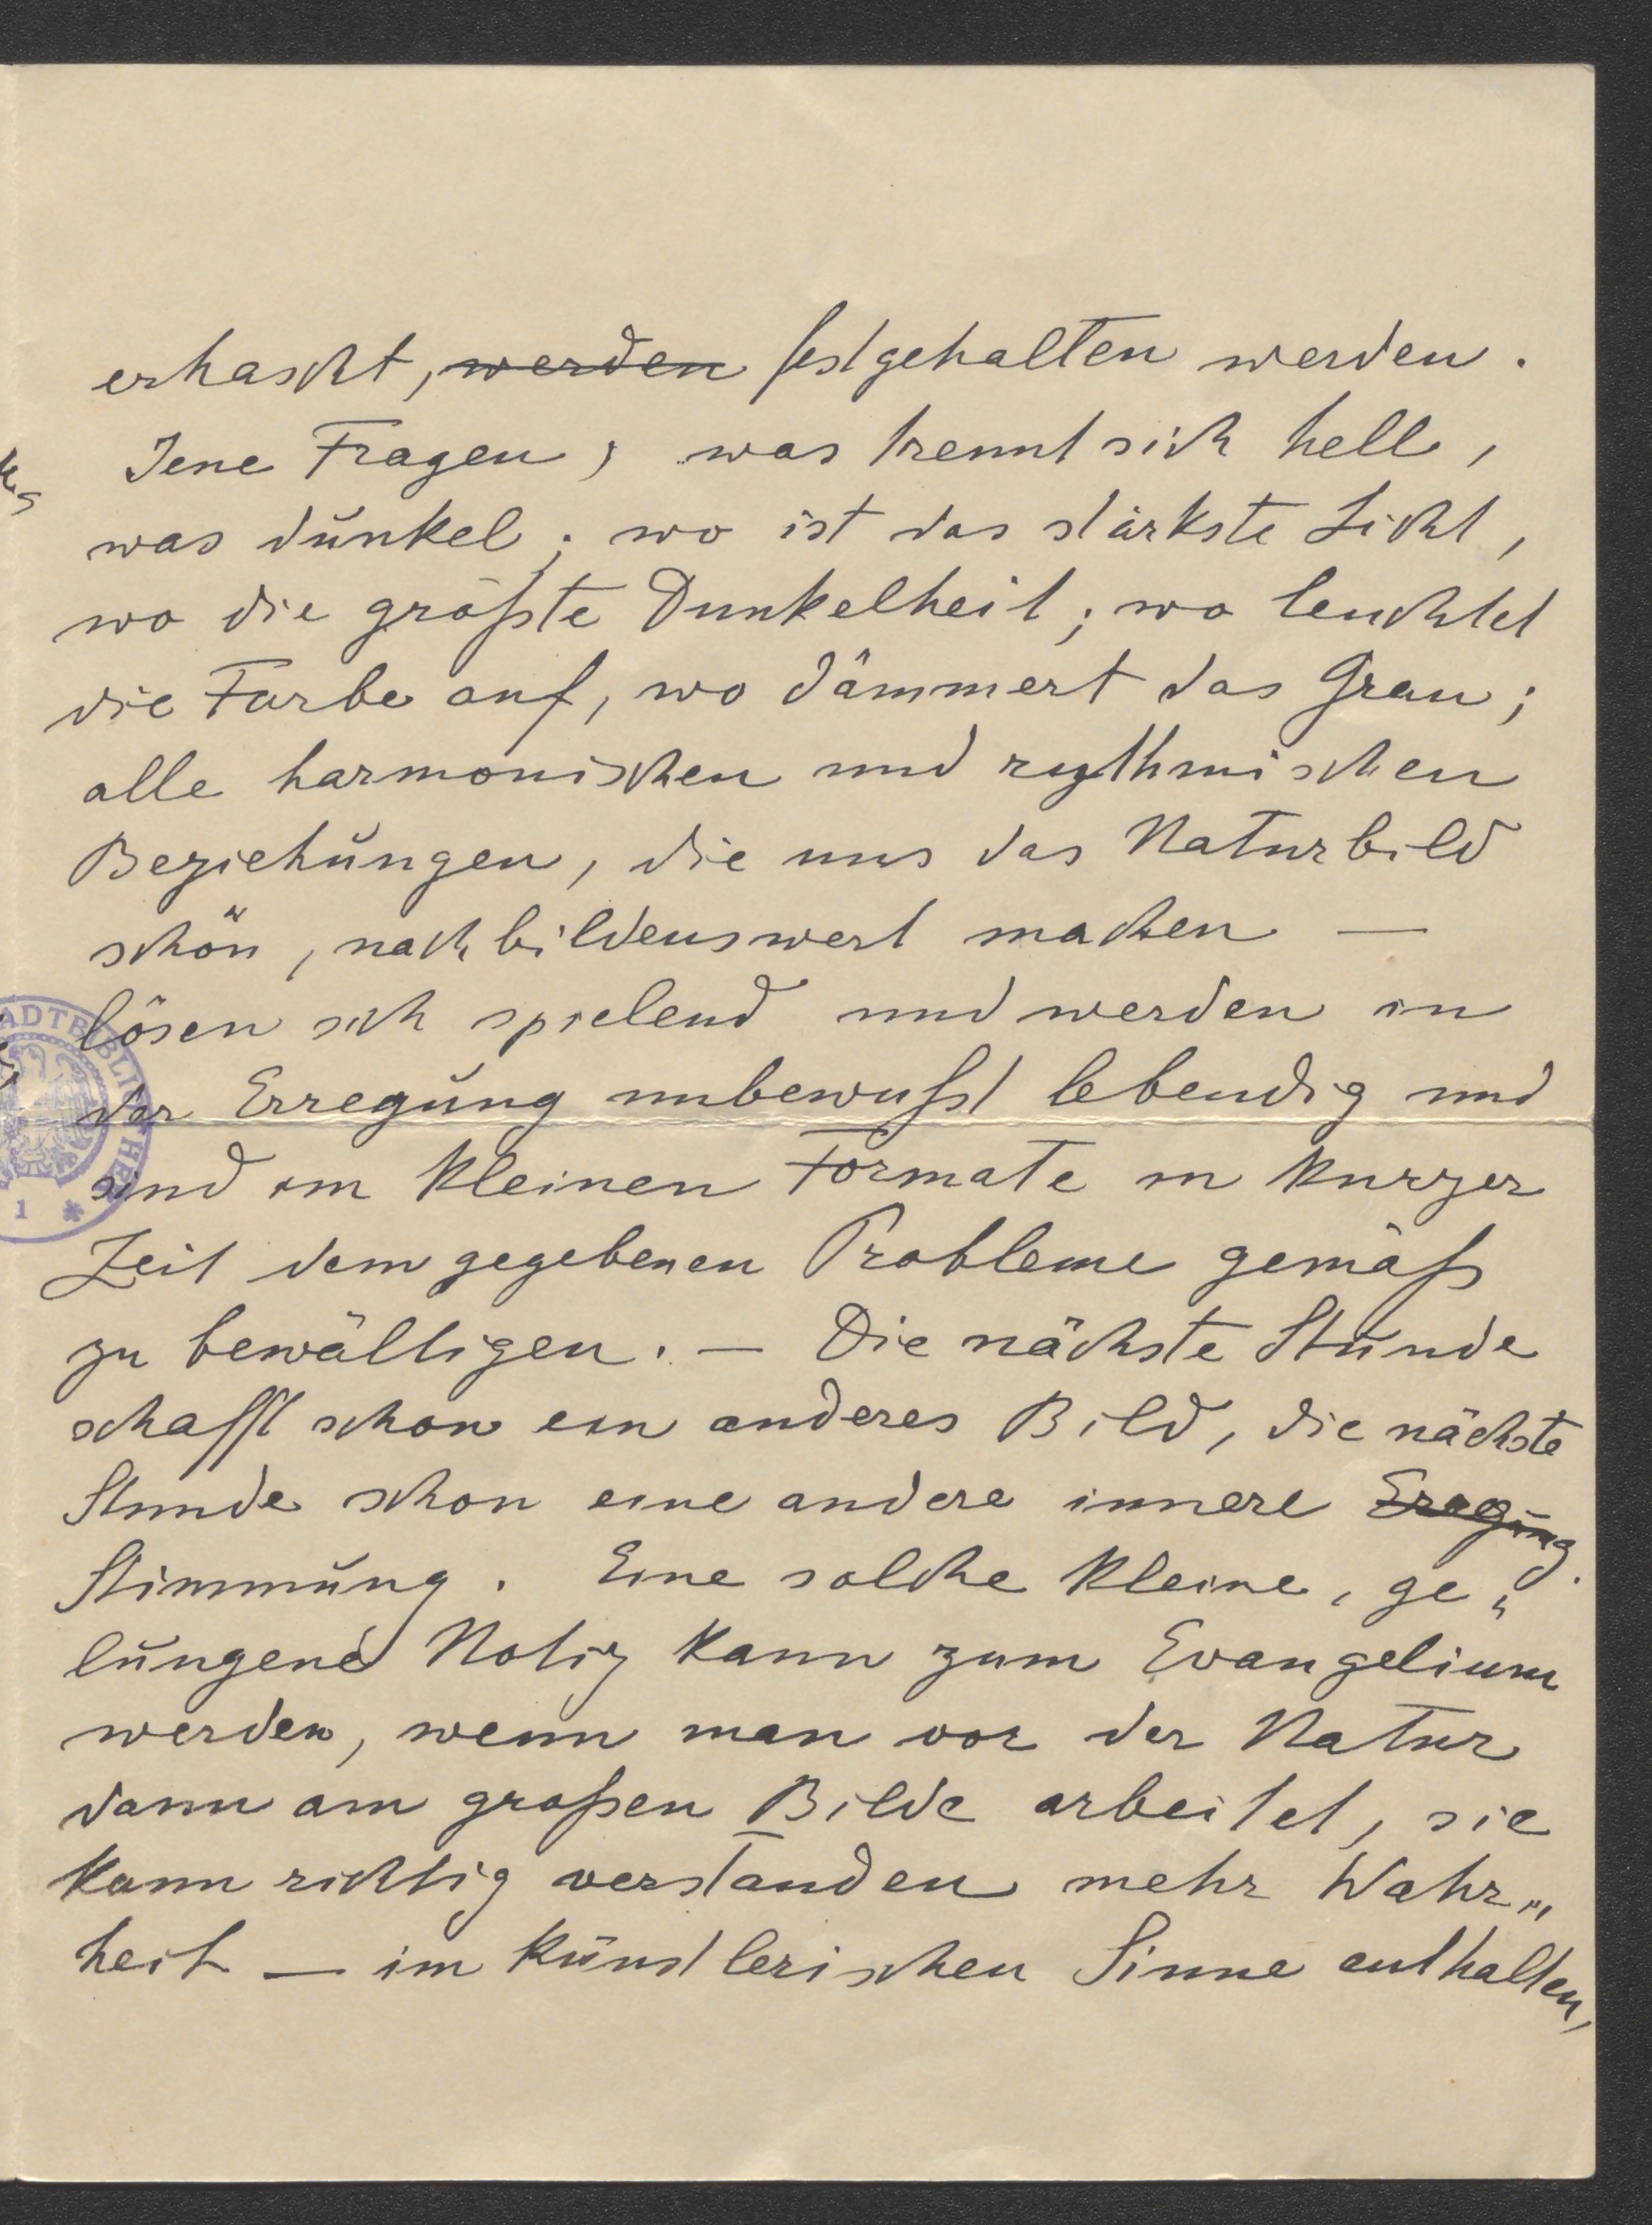 erhascht, werden festgehalten werden.
Jene Fragen, was trennt sich hell,
was dunkel; wo ist das stärkste Licht,
wo die größte Dunkelheit; wo leuchtet
die Farbe auf, wo dämmert das Grau;
alle harmonischen und rythmischen
Beziehungen, die uns das Naturbild
schön, nachbildenswert machen —
lösen sich spielend und werden in
der Erregung unbewußt lebendig und
sind im kleinen Formate in kurzer
Zeit dem gegebenen Probleme gemäß
zu bewältigen. — Die nächste Stunde
schafft schon ein anderes Bild, die nächste
Stunde schon eine andere innere Eregung.
Stimmung. Eine solche kleine, ge„
lungene Notiz kann zum Evangelium
werden, wenn man vor der Natur
dann am großen Bilde arbeitet, sie
kann richtig verstanden mehr Wahr„
heit — im künstlerischen Sinne enthalten,
ADTBIBLIOTHEK
1 *